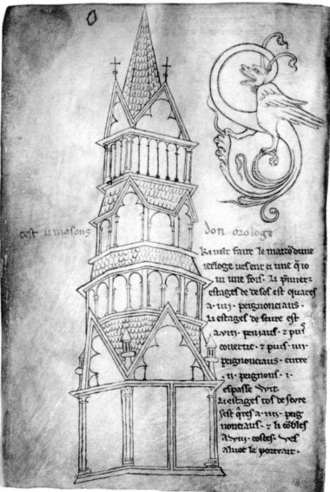 cest li masons don orologe
Ki velt faire le maizon dune
ierloge ves ent ci une q̃ io
vi une fois. Li p̃miers
estages de desos est quares
a .iiii. peignonciaus.
Li estages de seure est
a .viii. peniaus. & puis
covertic. & puis .iiii.
peignonciaus. entre
.ii. peignons .i.
espasse wit.
Li estages tos de sovre
sest q̃res a .iiii. peig
nonciaus. & li cobles
a .viii. costes. ves
aluec le portrait.